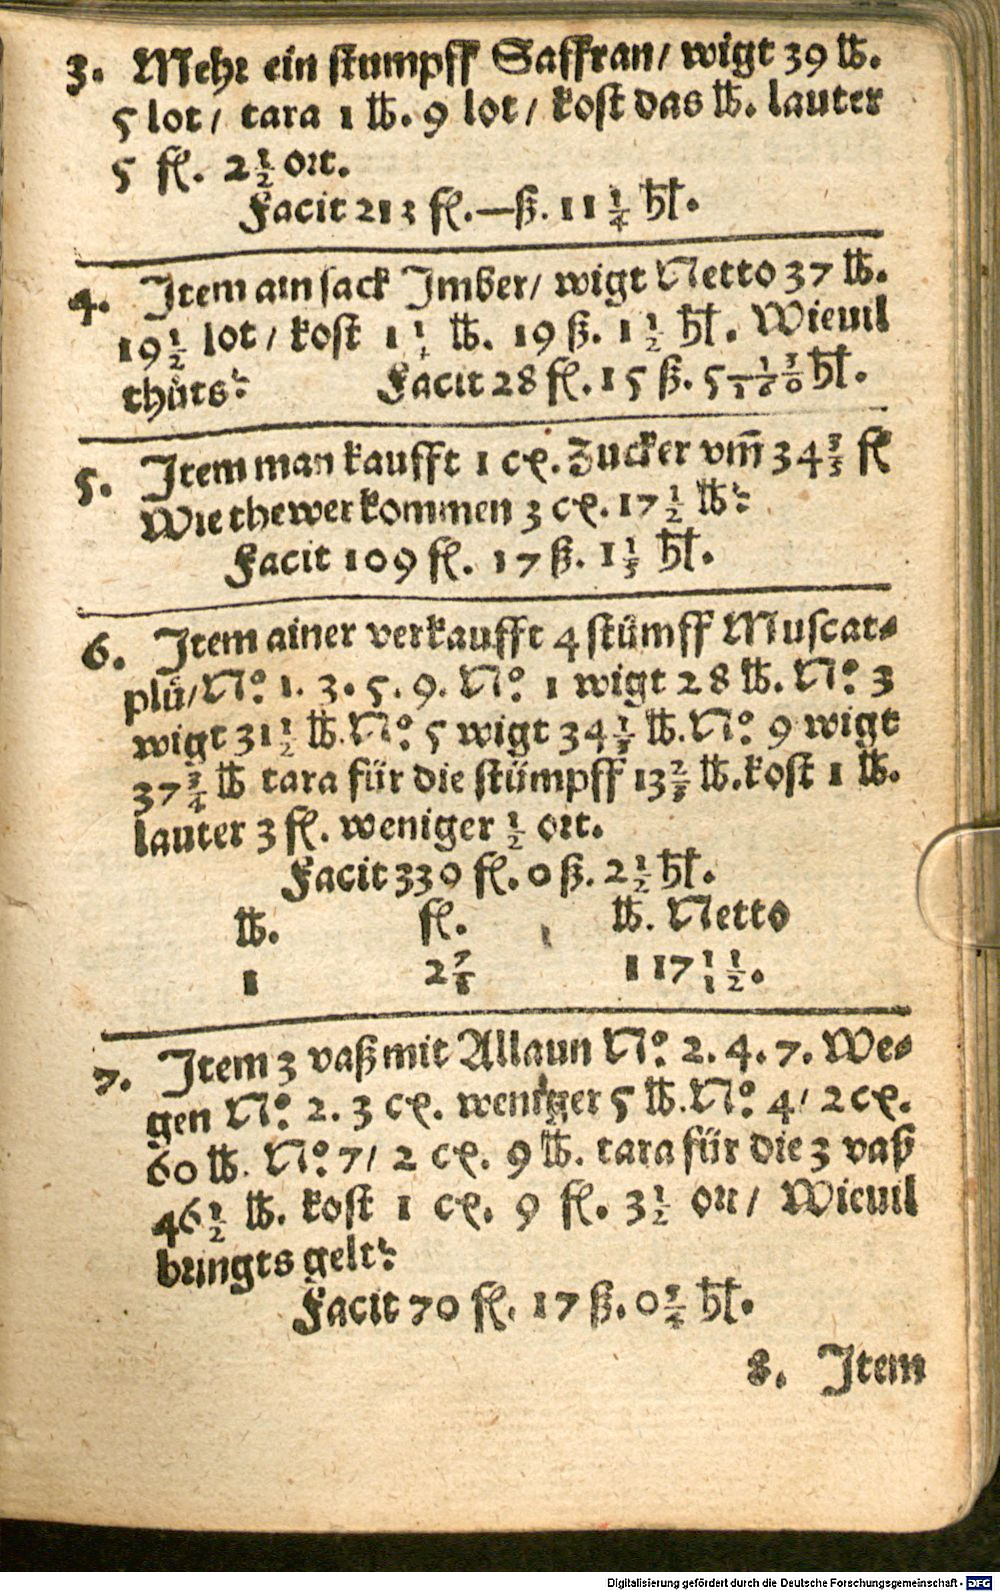 3. Mehr ein stumpff Saffran/ wigt 39 lb.
5 lot/ tara 1 lb. 9 lot/ kost das lb. lauter
5 fl. 2 1/2 ort.
Facit 213 fl.—ß. 11 1/4 hl.
4. Item ain sack Imber/ wigt Netto 37 lb.
19 1/2 lot/ kost 1 lb. 19 ß. 1 1/2 hl. Wieuil
thůts? Facit 28 fl. 15 ß. 5 hl.
5. Item man kaufft 1 cr. Zucker vm̄ 34 3/5 fl
Wie thewer kommen 3 cr. 17 1/2 lb?
Facit 109 fl. 17 ß. 1 1/5 hl.
6. Item ainer verkaufft 4 stümff Muscat-
plů/ No. 1. 3. 5. 9. No. 1 wigt 28 lb. No. 3
wigt 31 1/2 lb. No. 5 wigt 34 1/3 lb. No. 9 wigt
37 3/4 lb tara für die stümpff 13 2/3 lb. kost 1 lb.
lauter 3 fl. weniger 1/2 ort.
Facit 339 fl. 0 ß. 2 1/2 hl.
lb. fl. lb. Netto
1 2 7/8 117 11/12.
7. Item 3 vaß mit Allaun No. 2. 4. 7. We-
gen No. 2. 3 cr. weniger 5 lb. No. 4/ 2 cr.
60 lb. No. 7/ 2 cr. 9 lb. tara für die 3 vaß
46 1/2 lb. kost 1 cr. 9 fl. 3 1/2 ort/ Wieuil
bringts gelt?
Facit 70 fl. 17 ß. 0 hl.
8. Item
Digitalisierung gefördert durch die Deutsche Forschungsgemeinschaft - DFG